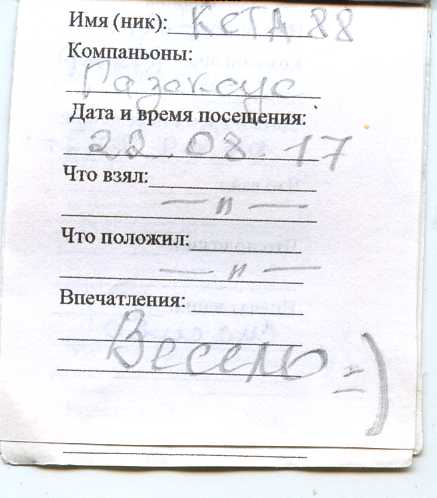 Имя (ник): КЕТА 88
Компаньоны:
Дата и время посещения:
22.08.17
Что взял:
— и —
Что положил:
— и —
Впечатления:
Весело =)